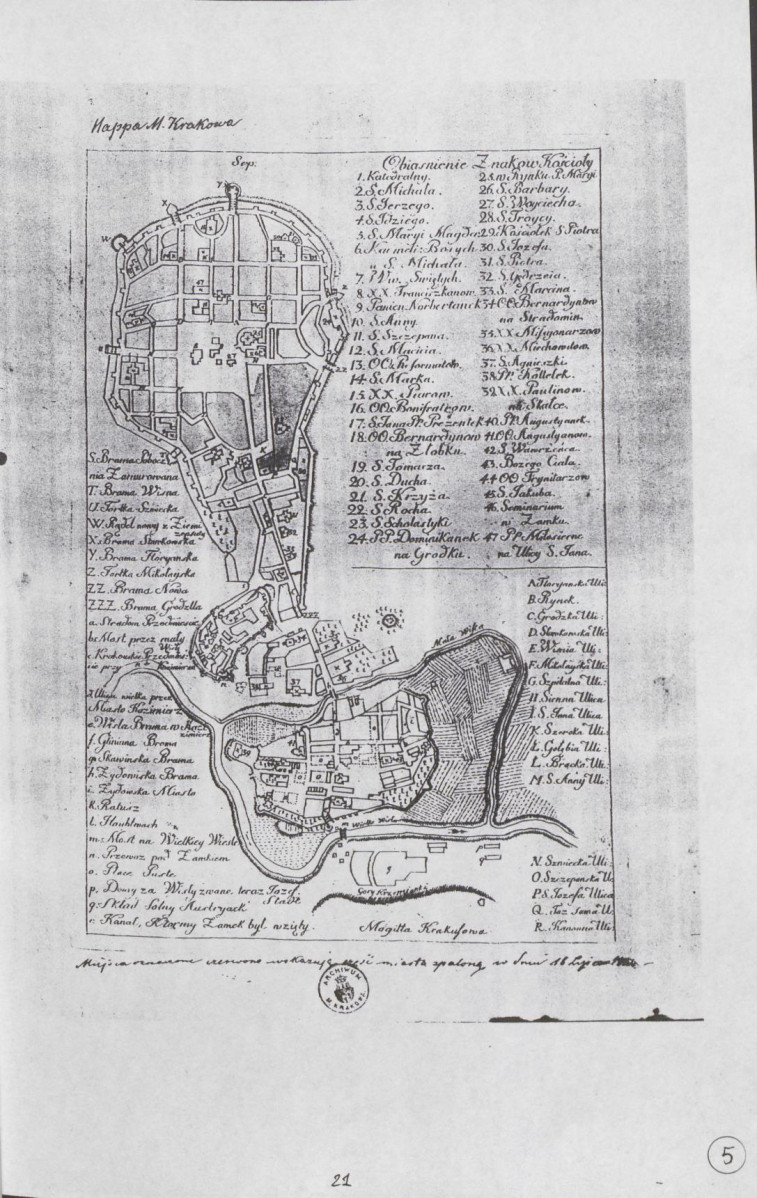 Mappa M. Krakowa
Sep.
Obiasnienie Znakow Kościoły
1. Katedralny.
2. S. Michala.
3. S. Jerzego.
4. S. Idziego.
5. S. Maryi Magda:
6. Karmeli: Bosych
u S. Michała.
7. WW. Swiętych.
8. XX. Franciszkanow.
9. Panien Norbertanek
10. S. Anny.
11. S. Szczepana.
12. S. Macicia.
13. OO. Reformatow.
14. S. Marka.
15. XX. Piarow.
16. OO. Bonifratrow.
17. S. Jana PP. Prezentek
18. OO. Bernardynow
na Złobku.
19. S. Tomasza.
20. S. Ducha.
21. S. Krzyża.
22. S. Rocha.
23. S. Scholastyki
24. PP. Dominikanek
na Grodku.
25. w Rynku P. Maryi
26. S. Barbary.
27. S. Woyciecha.
28. S. Troycy.
29. Kościołek S Piotra
30. S. Jozefa.
31. S. Piotra.
32. S. Jędrzeia.
33. S. Marcina.
34. OO. Bernardynow
na Stradomiu.
35. XX. Missyonarzow
36. XX. Miechowitow
37. S. Agnieszki
38. PP. Kolletek.
39. XX. Paulinow
na Skałce.
40. PP. Augustyanek.
41. OO. Augustyanow.
42. S. Wawrzeńca.
43. Bozego Ciała.
44. OO Trynitarzow
45. S. Jakuba.
46. Seminarium
w Zamku.
47. PP. Miłosierne
na Ulicy S. Jana.
S. Brama Pobocz
nia Zamurowana
T. Brama Wisna
U. Fortka Szewcka
W. Rądel nowy z Ziemi
X. Brama Sławkowska
Y. Brama Floryanska
Z. Fortka Mikolayska
ZZ. Brama Nowa
ZZZ. Brama Grodzka
a. Stradom Przedmieście
b. Most przez mały
Wisły
c. Krakowskie Przedmieś:
cie przy Kazimierzu
d. Ulica wielka przez
Miasto Kazimierz
e. Wisla Brama w Kazi
mierzu
f. Gliniana Brama
g. Skawinska Brama
h. Zydowska Brama.
i. Zydowskie Miasto
k. Ratusz
l. Haubtwach
m. Most na Wielkiey Wisle
n. Przewoz pod Zamkiem
o. Place Puste
p. Domy za Wisłą zwane teraz Jozef
Stadt
q. Skład Solny Austryack
r. Kanał, Ktorny Zamek był wzięty.
A. Floryanska Ulic
B. Rynek.
C. Grodzka Uli:
D. Sławkowska Uli:
E. Wisnia Uli:
F. Mikolayska Uli:
G. Szpitalna Uli:
H. Sienna Ulica
I. S. Jana Ulica
K. Szeroka Uli:
Ł. Gołębia Uli:
L. Bracka Uli:
M. S. Anny Uli:
N. Szewiecka Uli:
O. Szczepanska U.
P. S. Jozefa Ulica
Q. Toż sama U.
R. Kanonna Uli:
Mała Wisła
Wielka Wisła
Gory Krzemionki
Mogiłła Krakusowa
Miejsca oznaczone czerwono wskazują część miasta spaloną w dniu 18 Lipca
ARCHIWUM
M. KRAKOWA
5
21